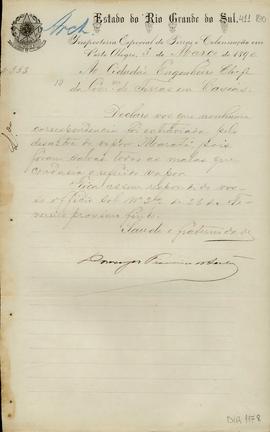 Arch
Estado do Rio Grande do Sul. 411
Inspectoria Especial de Terras e Colonisação em
Porto Alegre, 3 de Março de 1890
N. 253
Ao Cidadão Engenheiro Chefe
da de Terras em Caxias.
Declaro vos que nenhuma
correspondencia foi extraviada pelo
desastre do vapor Maranhão, pois
foram salvas todas as malas que
conduzia o referido vapor.
Fica assim respondido o vos-
so officio sob Nº de 26 de Fe-
vereiro proximo findo.
Saude e fraternidade
DIA 1178